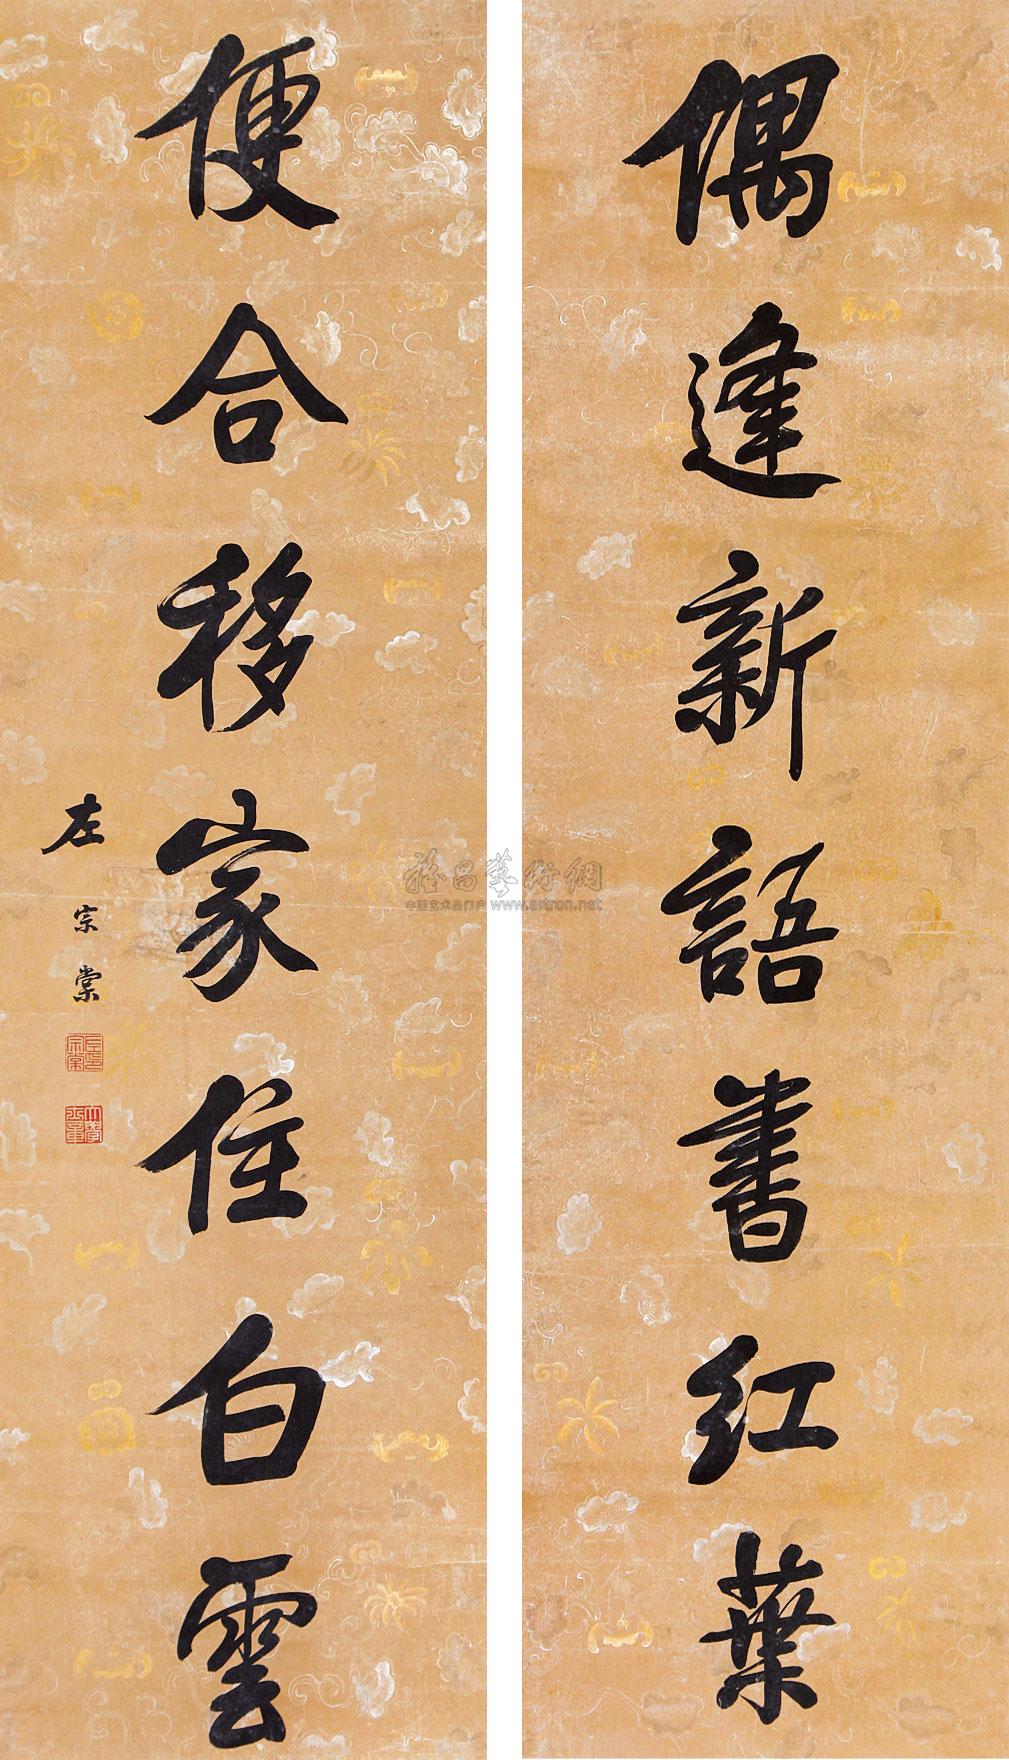 偶逢新語書紅葉
便合移家住白雲
左宗棠
雅昌藝術網
中国艺术品门户 www.artron.net